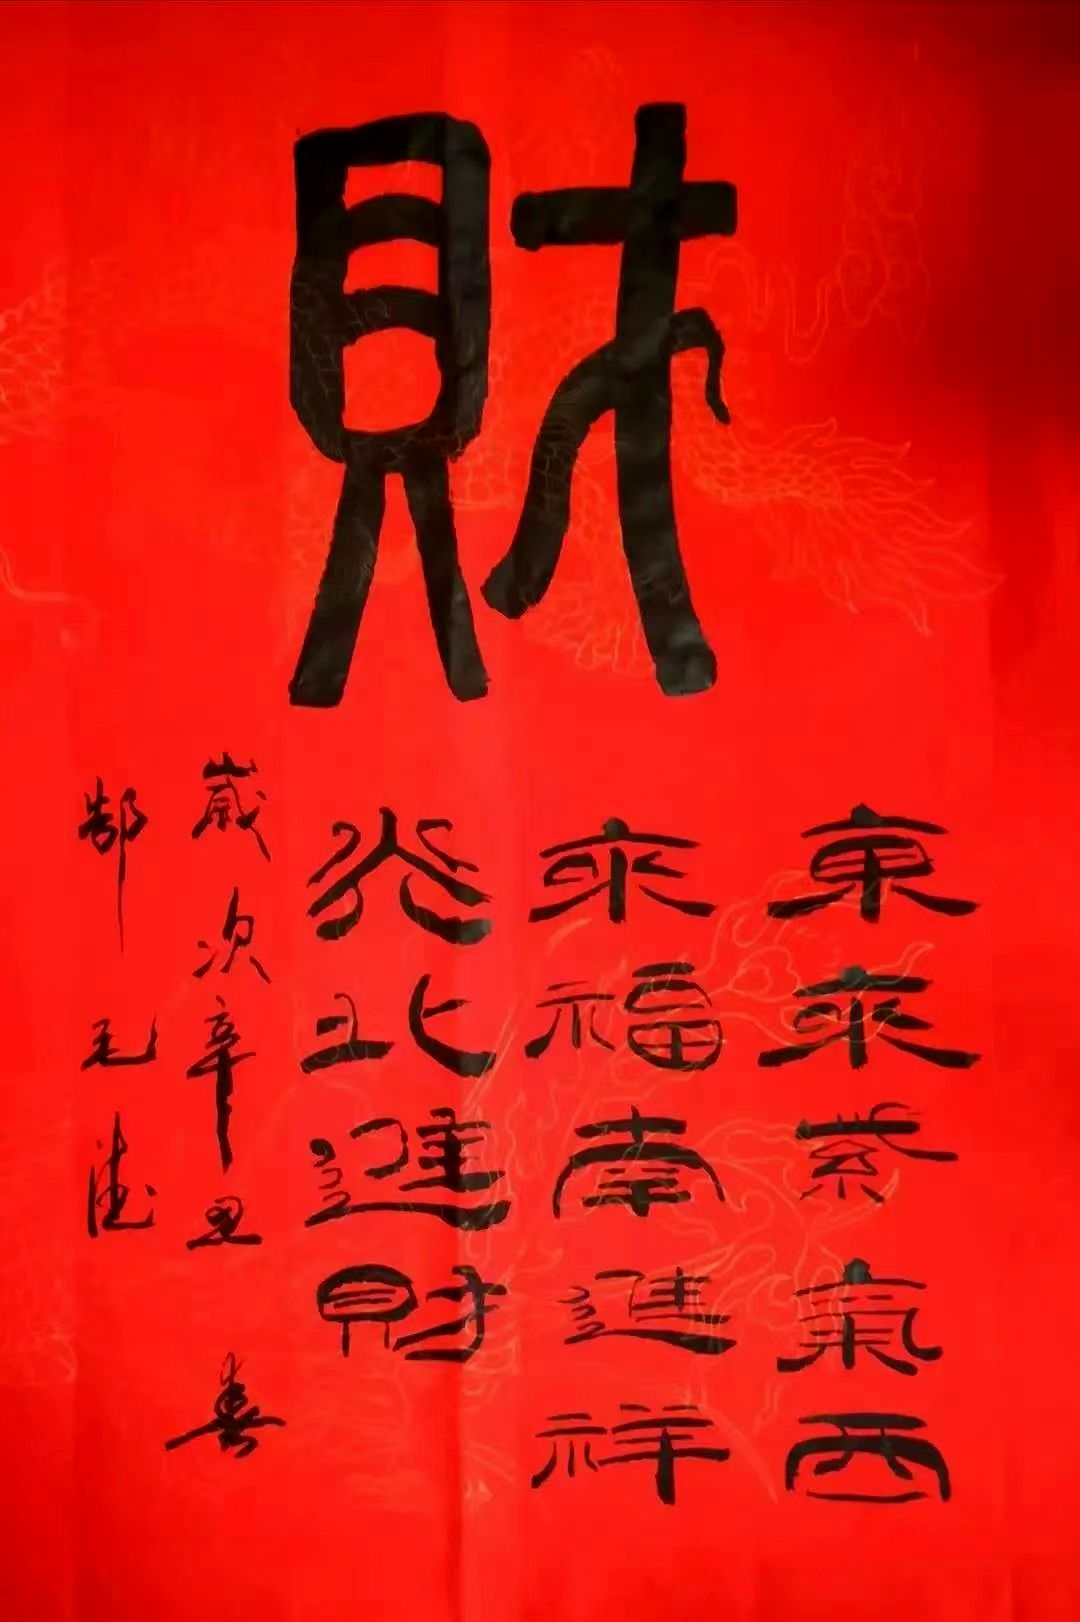 財
東來紫氣西
來福南進祥
光北進財
歲次辛丑春
郜毛